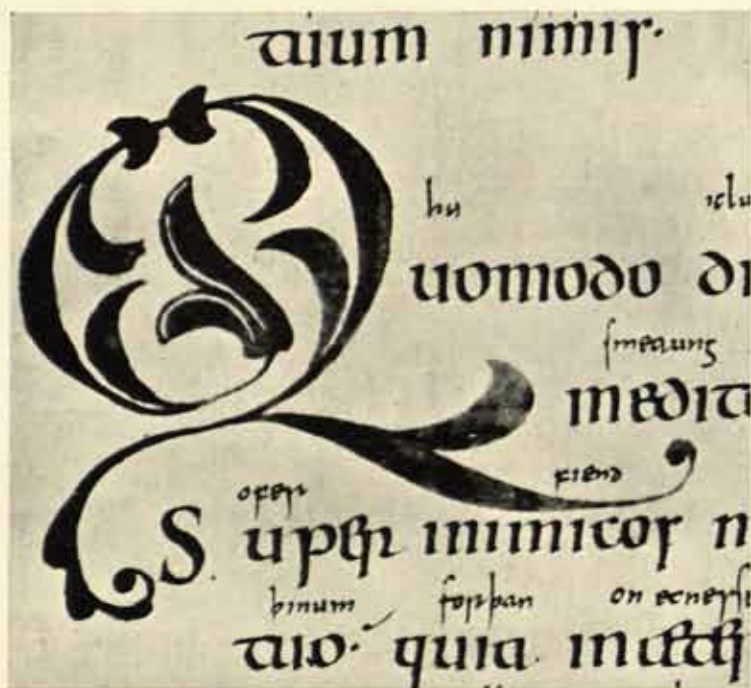 tuum nimis·
hu iclu
Quomodo di
smeaung
medita
ofer fiend
Super inimicos
þinum forþan on ecnesse
tuo· quia in